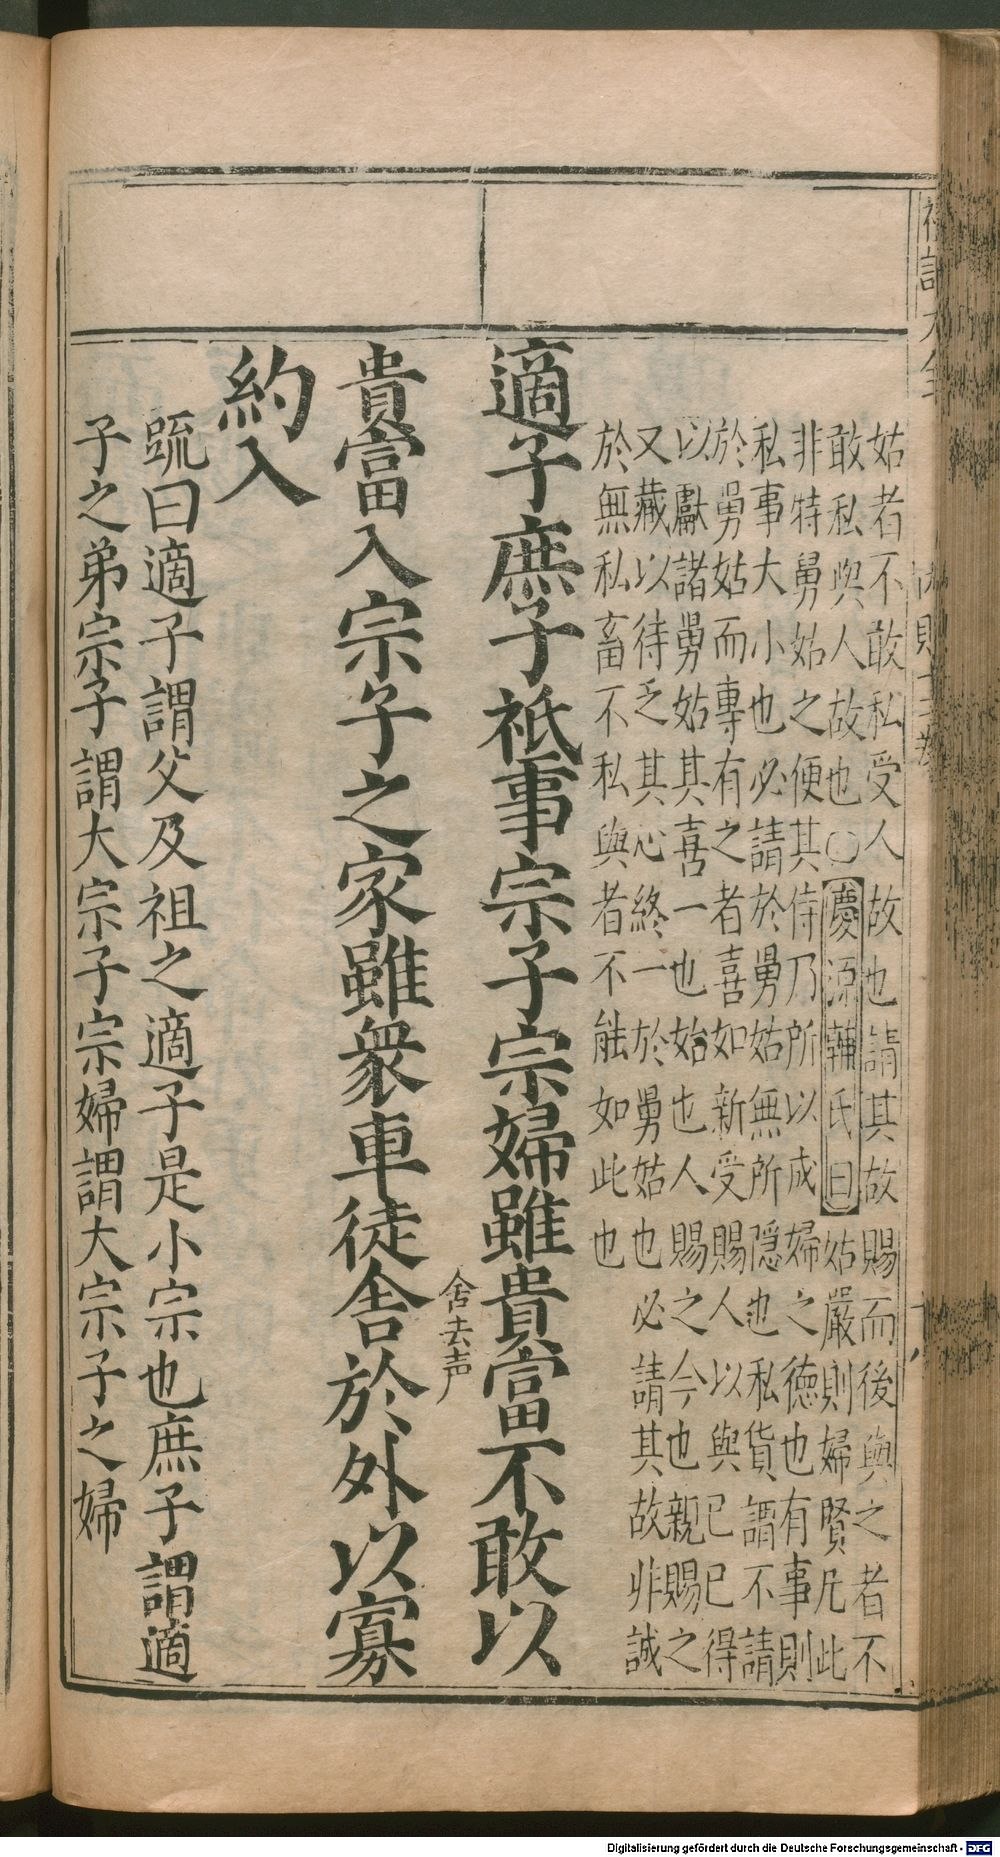 姑者不敢私受人故也請其故賜而後與之者不
敢私與人故也〇慶源輔氏曰姑嚴則婦賢凡此
非特舅姑之便其侍乃所以成婦之德也有事則
私事大小也必請於舅姑無所隱也私貨謂不請
於舅姑而專有之者喜如新受賜人以與已已得
以獻諸舅姑其喜一也始也人賜之今也親賜之
又藏以待乏其心終一於舅姑也必請其故非誠
於無私畜不私與者不能如此也
適子庶子祗事宗子宗婦雖貴富不敢以
貴富入宗子之家雖衆車徒舍於外以寡
舍去声
約入
䟽曰適子謂父及祖之適子是小宗也庶子謂適
子之弟宗子謂大宗子宗婦謂大宗子之婦
Digitalisierung gefördert durch die Deutsche Forschungsgemeinschaft - DFG